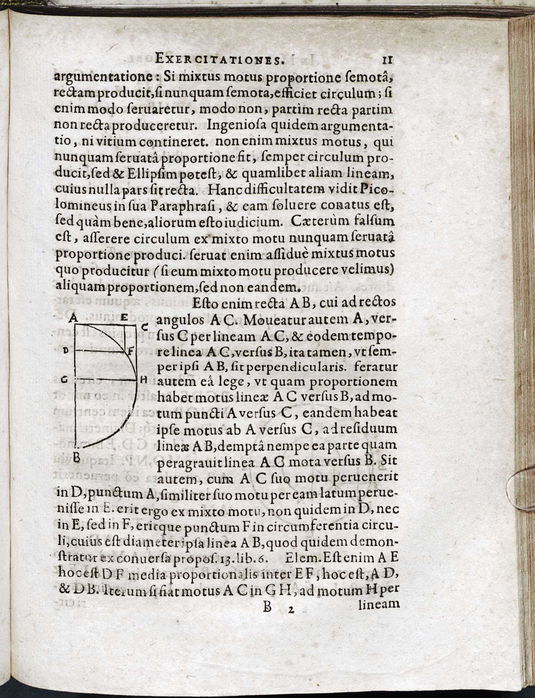 EXERCITATIONES. 11
argumentatione: Si mixtus motus proportione semotâ,
rectam producit, si nunquam semota, efficiet circulum; si
enim modo seruaretur, modo non, partim recta partim
non recta produceretur. Ingeniosa quidem argumenta-
tio, ni vitium contineret. non enim mixtus motus, qui
nunquam seruatâ proportione fit, semper circulum pro-
ducit, sed & Ellipsim potest, & quamlibet aliam lineam,
cuius nulla pars sit recta. Hanc difficultatem vidit Pico-
lomineus in sua Paraphrasi, & eam soluere conatus est,
sed quàm bene, aliorum esto iudicium. Cæterùm falsum
est, asserere circulum ex mixto motu nunquam seruatâ
proportione produci. seruat enim assiduè mixtus motus
quo producitur (si eum mixto motu producere velimus)
aliquam proportionem, sed non eandem.
Esto enim recta A B, cui ad rectos
angulos A C. Moueatur autem A, ver-
sus C per lineam A C, & eodem tempo-
re linea A C, versus B, ita tamen, vt sem-
per ipsi A B, sit perpendicularis. feratur
autem eâ lege, vt quam proportionem
habet motus lineæ A C versus B, ad mo-
tum puncti A versus C, eandem habeat
ipse motus ab A versus C, ad residuum
lineæ A B, demptâ nempe ea parte quam
peragrauit linea A C mota versus B. Sit
autem, cum A C suo motu peruenerit
in D, punctum A, similiter suo motu per eam latum perue-
nisse in E. erit ergo ex mixto motu, non quidem in D, nec
in E, sed in F, eritque punctum F in circumferentia circu-
li, cuius est diameter ipsa linea A B, quod quidem demon-
stratur ex conuersa propos. 13. lib. 6. Elem. Est enim A E
hoc est D F media proportionalis inter E F, hoc est, A D,
& D B. Iterum si fiat motus A C in G H, ad motum H per
B 2 lineam
A E C
D F
G H
B